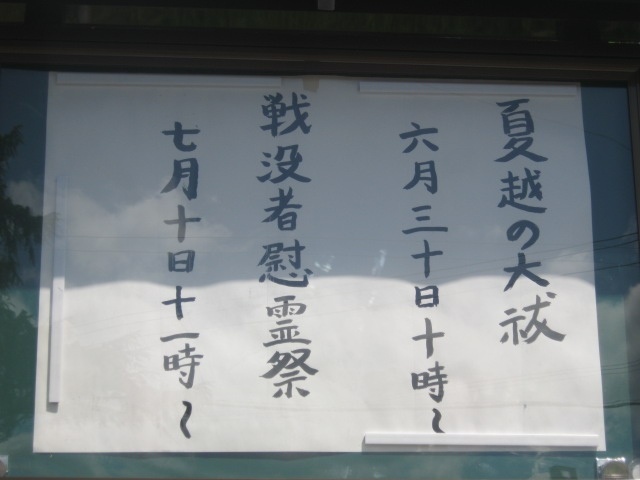 夏越の大祓
六月三十日十時~
戦没者慰霊祭
七月十日十一時~